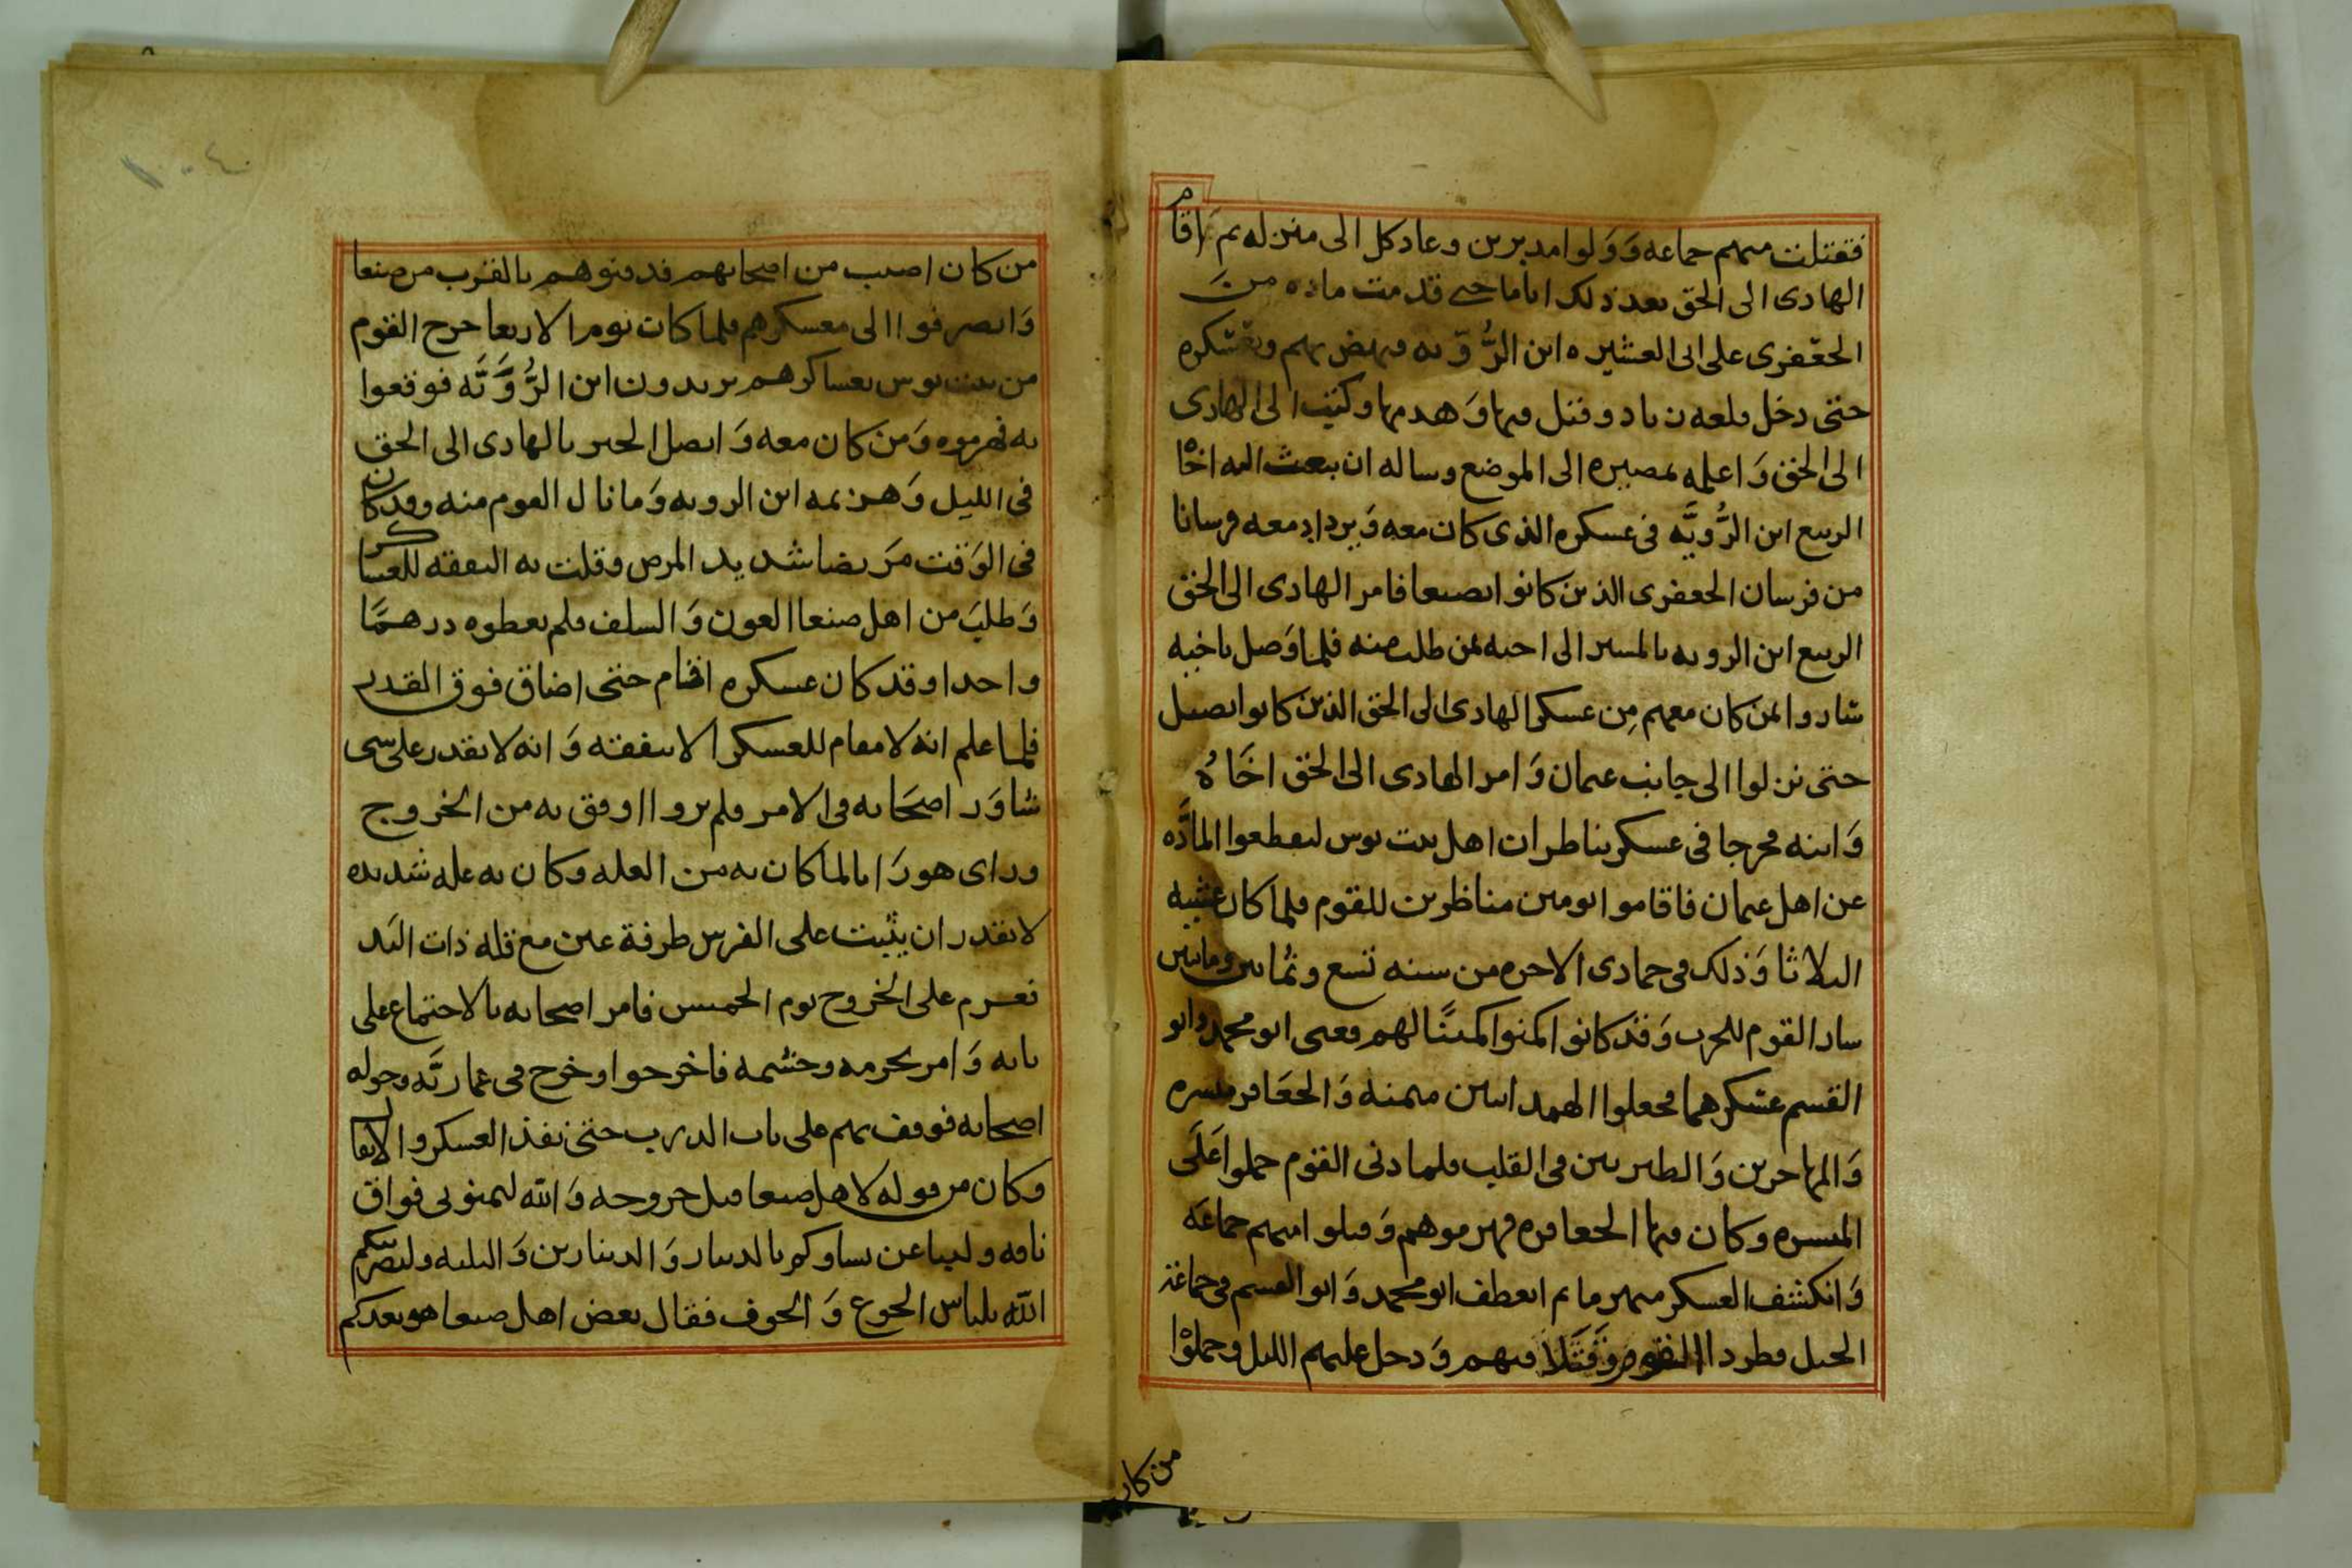 فقتلت منهم جماعه وَوَلوا مدبرين وعاد كل الى منزله ثم اقام
الهادى الى الحق بعد ذلك اياما حتى قدمت ماده من
الجعفرى على الى العشيره ابن الرُّوَّيه فنهض بهم وبعسكره
حتى دخل قلعه ن باد وقتل فيها وَهدمها وكتب الى الهادى
الى الحق وَاعلمه بمصيره الى الموضع وساله ان يبعث اليه اخاه
الربيع ابن الرُّويَّه فى عسكره الذى كان معه وَيرداد معه فرسانا
من فرسان الجعفرى الذين كانوا بصنعا فامر الهادى الى الحق
الربيع ابن الرويه بالمسير الى اخيه بمن طلب منه فلما وَصل باخيه
شاروا بمن كان معهم مِن عسكر الهادى الى الحق الذين كانوا بصيل
حتى نزلوا الى جانب عمان وَامر الهادى الى الحق اخَاهُ
وَابنه فخرجا فى عسكر يناطران اهل بيت بوس ليقطعوا المادَّه
عن اهل عمان فاقاموا يومين مناظرين للقوم فلما كان عشيه
الثلاثا وَذلك فى جمادى الاخره من سنه تسع وثمانين ومائتين
سار القوم للحرب وَقد كانوا اكمنوا كمينًا لهم فعبى ابو محمد وابو
القسم عسكرهما فجعلوا الهمدانيين ميمنه وَالجعَافر ميسره
وَالمهاجرين وَالطبريين فى القلب فلما دنى القوم حملوا عَلَى
الميسره وكان فيها الجعافره فهزموهم وَقتلوا منهم جماعَه
وَانكشف العسكر منهزما ثم انعطف ابو محمد وَابو القسم فى جماعة
الخيل فطردا القوم وَقَتَلا فيهم وَدخل عليهم الليل وحملوْا
من كان
من كان اصيب من اصحابهم فدفنوهم بالقرب من صنعا
وَانصرفوا الى معسكرهم فلما كان يوم الاربعا خرج القوم
من بيت بوس بعساكرهم يريدون ابن الرُّوَّيَّه فوقعوا
به فهزموه وَمن كان معه وَاتصل الخبر بالهادى الى الحق
فى الليل وَهزيمه ابن الرويه وَما نال القوم منه وقد كان
فى الوَقت مرَيضا شديد المرض وقلت به النفقه للعساكر
وَطلبَ من اهل صنعا العون وَالسلف فلم يعطوه درهمًا
واحدا وقد كان عسكره اقام حتى اضاق فوق القدر
فلما علم انه لا مقام للعسكر الا بنفقته وَانه لا يقدر على شى
شاوَر اصحَابه فى الامر فلم يروا اوفق به من الخروج
وراى هو رَايا لما كان به من العله وكان به عله شديده
لا يقدر ان يثبت على الفرس طرفة عين مع قله ذات اليَد
فعزم على الخروج يوم الخميس فامر اصحابه بالاجتماع على
بابه وَامر بحرمه وحشمه فاخرجوا وخرج فى عماريَّه وحوله
اصحابه فوقف بهم على باب الدرب حتى نفذ العسكر والاثقال
وكان من قوله لاهل صنعا قبل خروجه وَالله لتمنوني فواق
ناقه ولتباعن نساوكم بالدينار وَالدينارين وَالثلثه وليضربنكم
الله بلباس الجوع وَالخوف فقال بعض اهل صنعا هو يعدكم